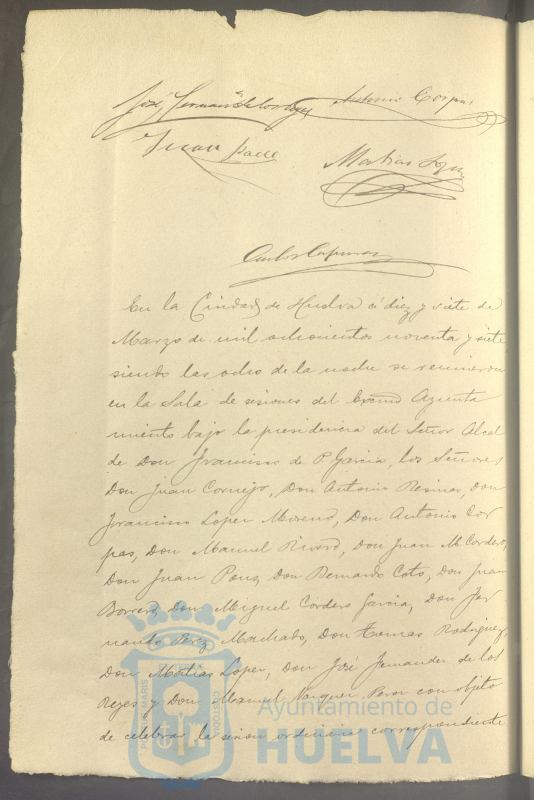 José Fernand de los Reyes Antonio Corpas
Juan Ponce
Matias Lopez
Carlos
En la Ciudad de Huelva á diez y siete de
Marzo de mil ochocientos noventa y siete
siendo las ocho de la noche se reunieron
en la Sala de sesiones del Excmo Ayunta
miento bajo la presidencia del Señor Alcal
de Don Francisco de P. Garcia, los Señores
Don Juan Cornejo, Don Antonio Resinas, Don
Francisco Lopez Moreno, Don Antonio Cor
pas, Don Manuel Rivero, Don Juan M. Cordero,
Don Juan Ponz, Don Bernardo Coto, Don Juan
Borrero, Don Miguel Cordero Garcia, Don Fer
nando Perez Machado, Don Tomas Rodriguez,
Don Matias Lopez, Don José Fernandez de los
Reyes y Don Manuel Vazquez Perez con objeto
de celebrar la sesion ordinaria correspondiente
PORTUS MARIS ET TERRAE CUSTODIA
Ayuntamiento de
HUELVA